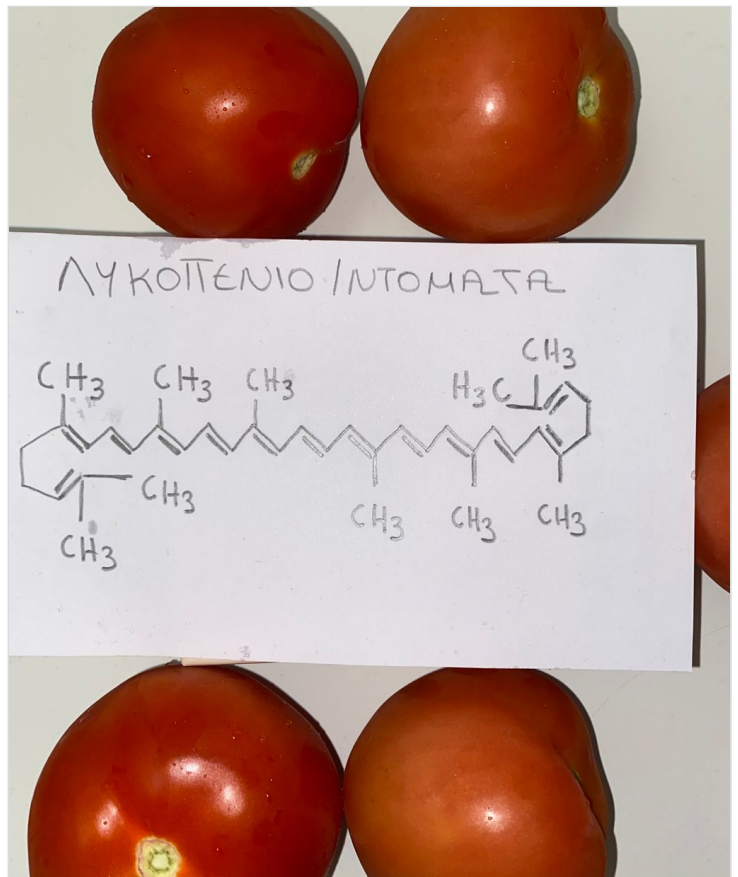 ΛΥΚΟΠΕΝΙΟ/ΝΤΟΜΑΤΑ
CH3
CH3 CH3 CH3 H3C
CH3
CH3 CH3 CH3
CH3